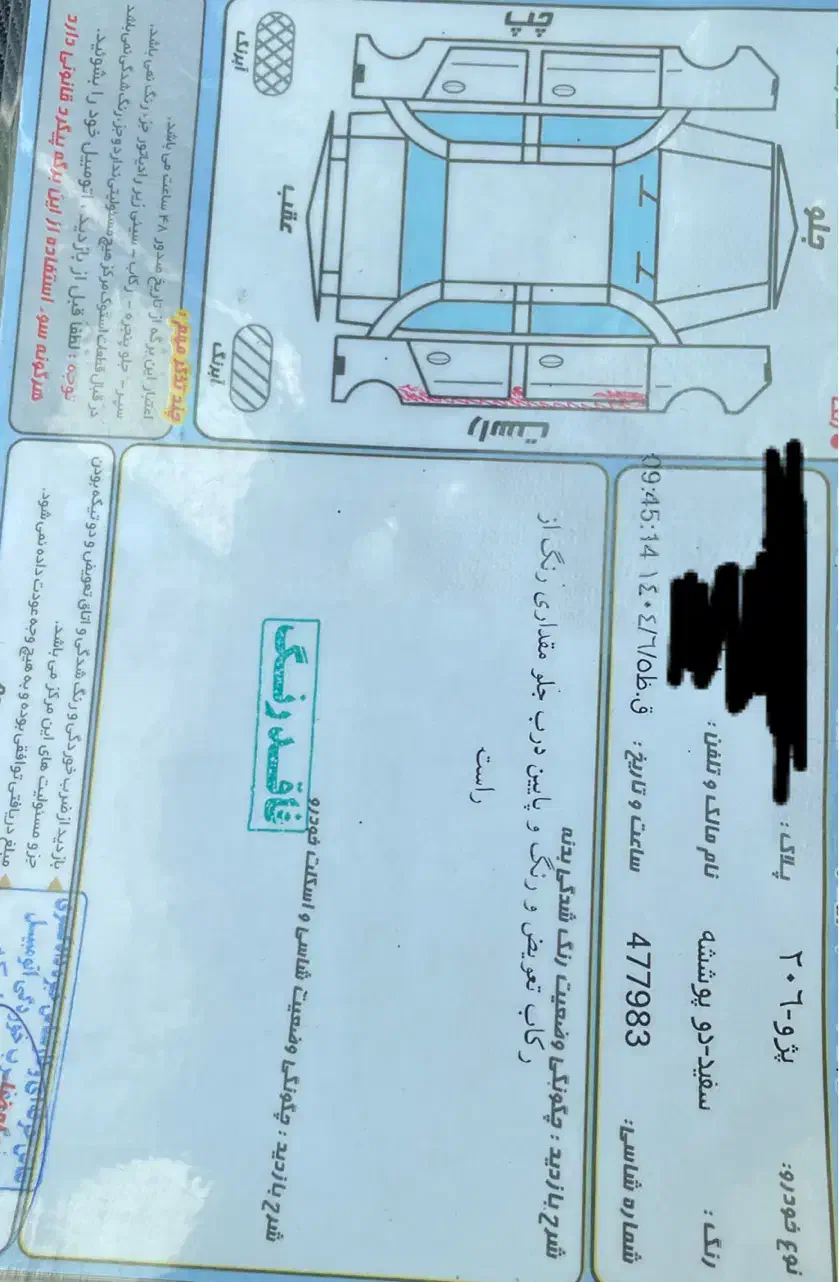 نوع خودرو: پژو-۲۰۶
پلاک :
رنگ : سفید-دو پوششه
نام مالک و تلفن :
شماره شاسی: 477983
ساعت و تاریخ : ق.ظ ١٤٠٤/٦/٥ 09:45:14
شرح بازدید : چگونگی وضعیت رنگ شدگی بدنه
رکاب تعویض و رنگ و پایین درب جلو مقداری رنگ از
راست
شرح بازدید : چگونگی وضعیت شاسی و اسکلت خودرو
فاقد رنگ
جلو
عقب
چپ
راست
آبرنگ
چند تذکر مهم :
اعتبار این برگه از تاریخ صدور ۴۸ ساعت می باشد.
سپر - جلو پنجره - رکاب - سینی زیر رادیاتور جزء رنگ نمی باشد.
در قبال قطعات استوک مرکز هیچ مسئولیتی ندارد و جزء رنگ شدگی نمی باشد
توجه : لطفا قبل از بازدید ، اتومبیل خود را بشوئید.
هرگونه سوء استفاده از این برگه پیگرد قانونی دارد
بازدید از ضرب خوردگی و رنگ شدگی و اتاق تعویض و دو تیکه بودن
جزو مسئولیت های این مرکز می باشد.
مبلغ دریافتی توافقی بوده و به هیچ وجه عودت داده نمی شود.